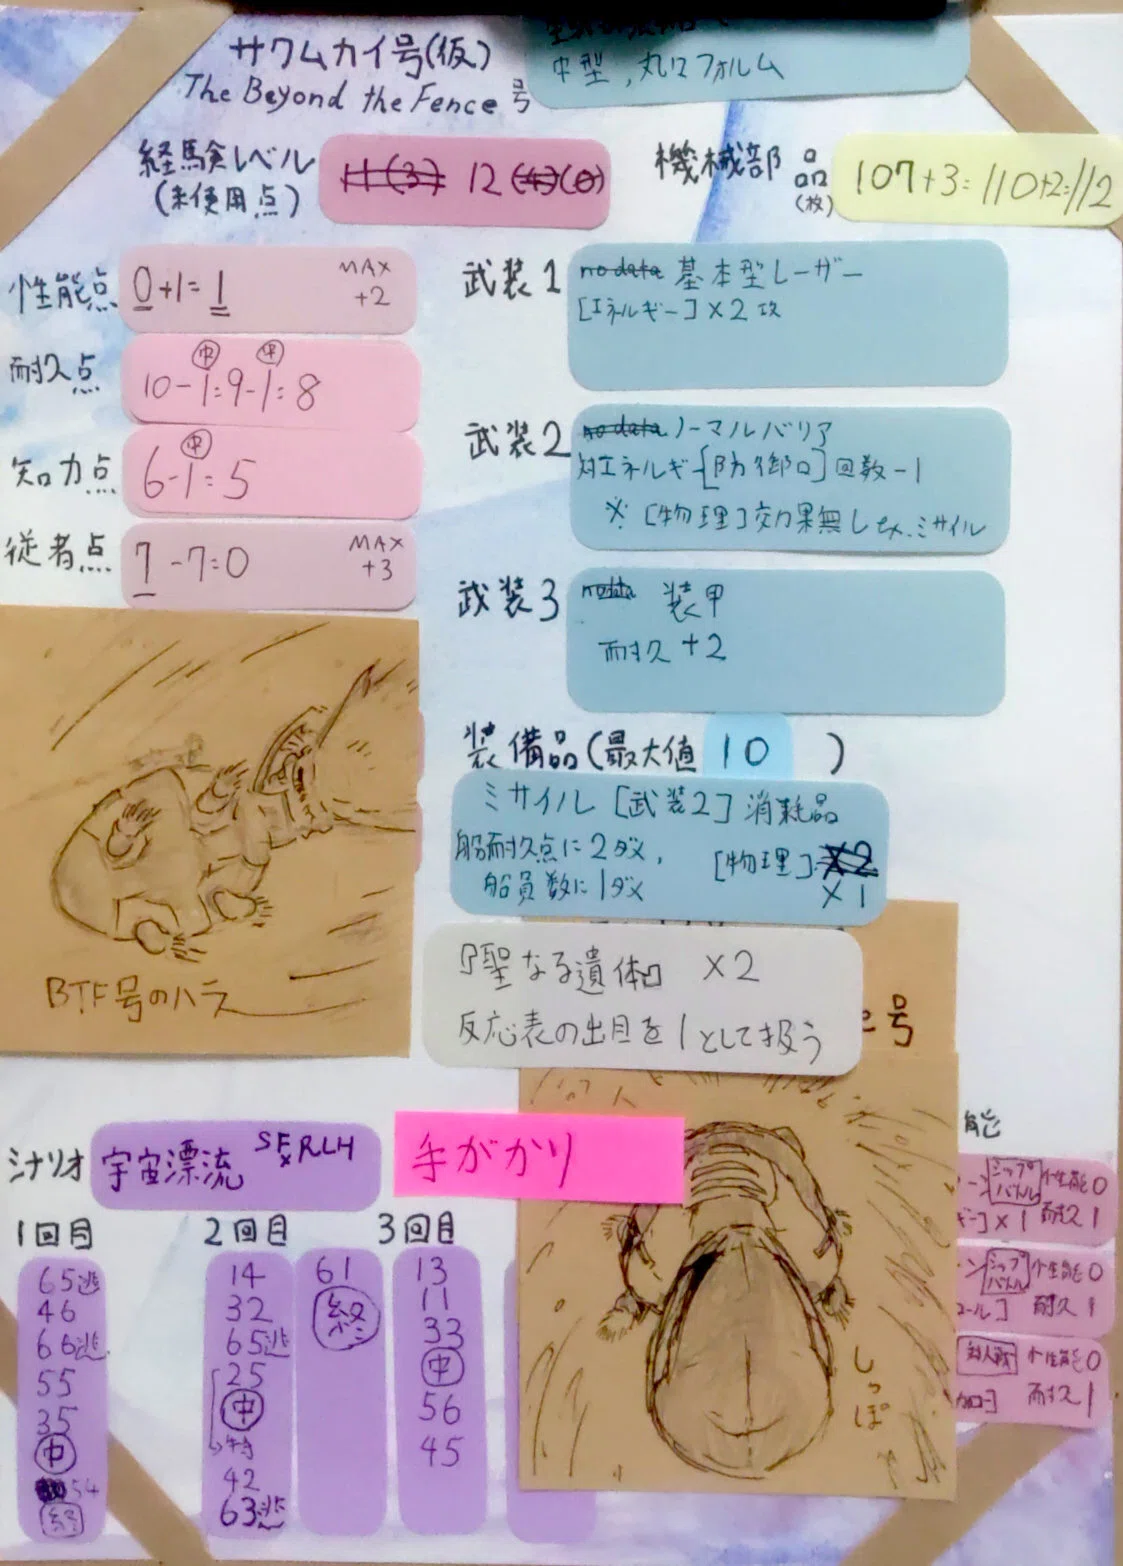 サワムカイ号(仮)
The Beyond the Fence号
中型,丸いフォルム
経験レベル
(未使用点)
11(3) 12(43)(0)
機械部品
(枚)
107+3=110+2=112
性能点
0+1=1
MAX
+2
耐久点
中 中
10-1=9-1=8
知力点
中
6-1=5
従者点
7-7=0
MAX
+3
武装1
no data 基本型レーザー
[エネルギー]×2攻
武装2
no data ノーマルバリア
対エネルギー[防御ロ]回数-1
※[物理]効果無し ex.ミサイル
武装3
nodata 装甲
耐久+2
装備品(最大値 10 )
ミサイル[武装2]消耗品
船耐久点に2ダメ,
船員数に1ダメ
[物理]×2
×1
『聖なる遺体』 ×2
反応表の出目を1として扱う
BTF号のハラ
号
しっぽ
能
シナリオ
宇宙漂流 SF×RLH
手がかり
1回目
65逃
46
66逃
55
35
中
54
終
2回目
14
32
65逃
25
中
特
42
63逃
61
終
3回目
13
11
33
中
56
45
シップ
バトル
性能0
]×1 耐久1
シップ
バトル
性能0
ロール] 耐久1
対人戦 性能0
耐久1